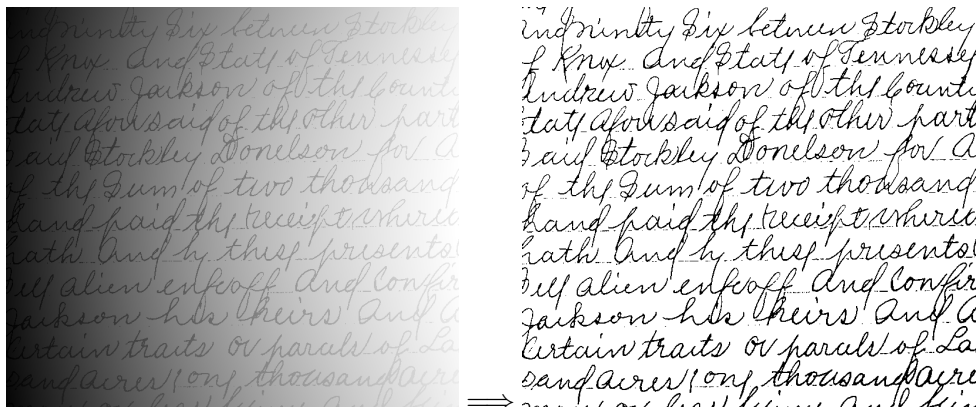 and ninety Six between Stockley
of Knox and State of Tennessey
Andrew Jackson of the Count
State aforesaid of the other part
Said Stockley Donelson for a
of the Sum of two thousand
hand paid the receipt where
hath And by these presents
Sell alien enfeoff And Confir
Jackson his heirs And a
Certain tracts or parcels of La
sand acres one thousand acre
and ninety Six between Stockley
of Knox and State of Tennessey
Andrew Jackson of the Count
State aforesaid of the other part
Said Stockley Donelson for a
of the Sum of two thousand
hand paid the receipt where
hath And by these presents
Sell alien enfeoff And Confir
Jackson his heirs And a
Certain tracts or parcels of La
sand acres one thousand acre